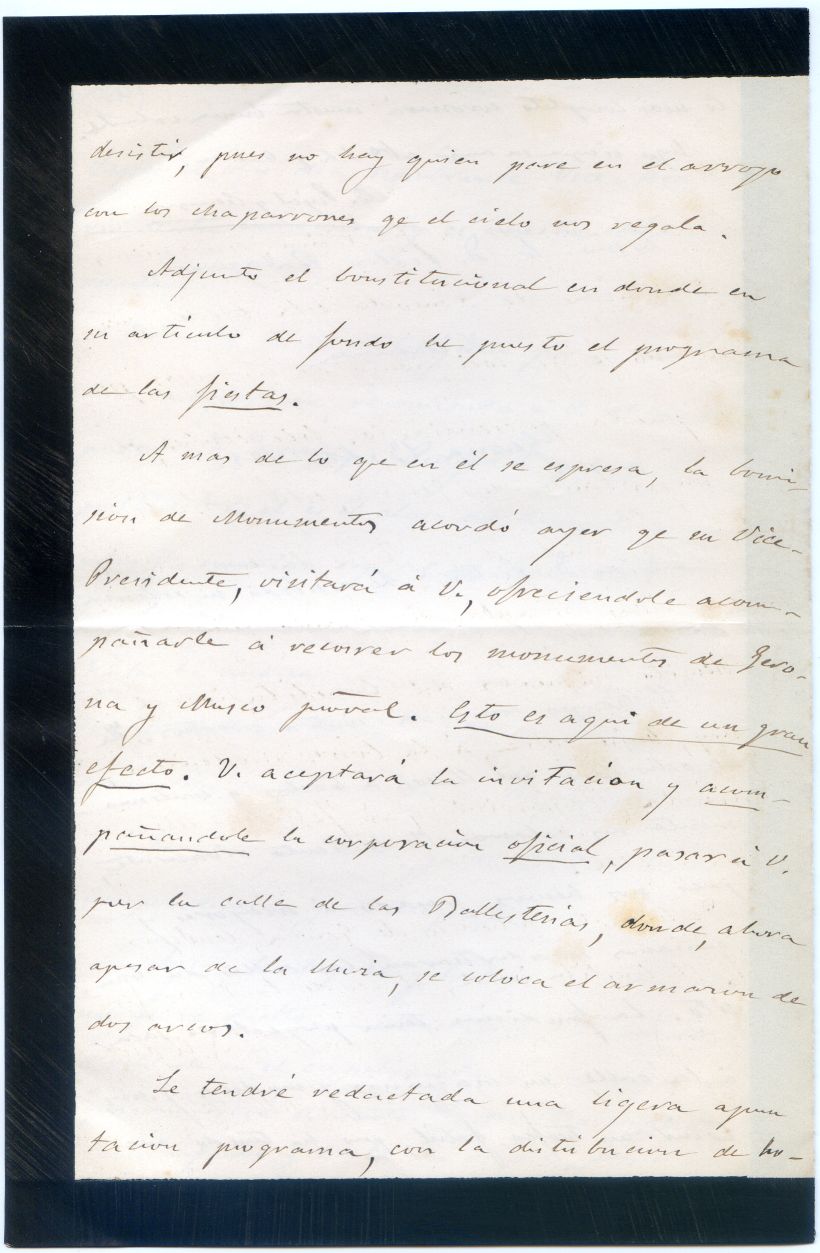 desistir, pues no hay quien pare en el arroyo
con los chaparrones qe el cielo nos regala.
Adjunto el Constitucional en donde en
su articulo de fondo he puesto el programa
de las fiestas.
A mas de lo qe en él se espresa, la Comi-
sion de Monumentos acordó ayer qe su Vice-
Presidente, visitará á V., ofreciendole acom-
pañarle á recorrer los monumentos de Gero-
na y Museo proval. Esto es aqui de un gran
efecto. V. aceptará la invitacion y acom-
pañandole la corporacion oficial, pasará V.
por la calle de las Ballesterias, donde, ahora
apesar de la lluvia, se coloca el armazon de
dos arcos.
Le tendré redactada una ligera apun
tacion programa, con la distribucion de ho-